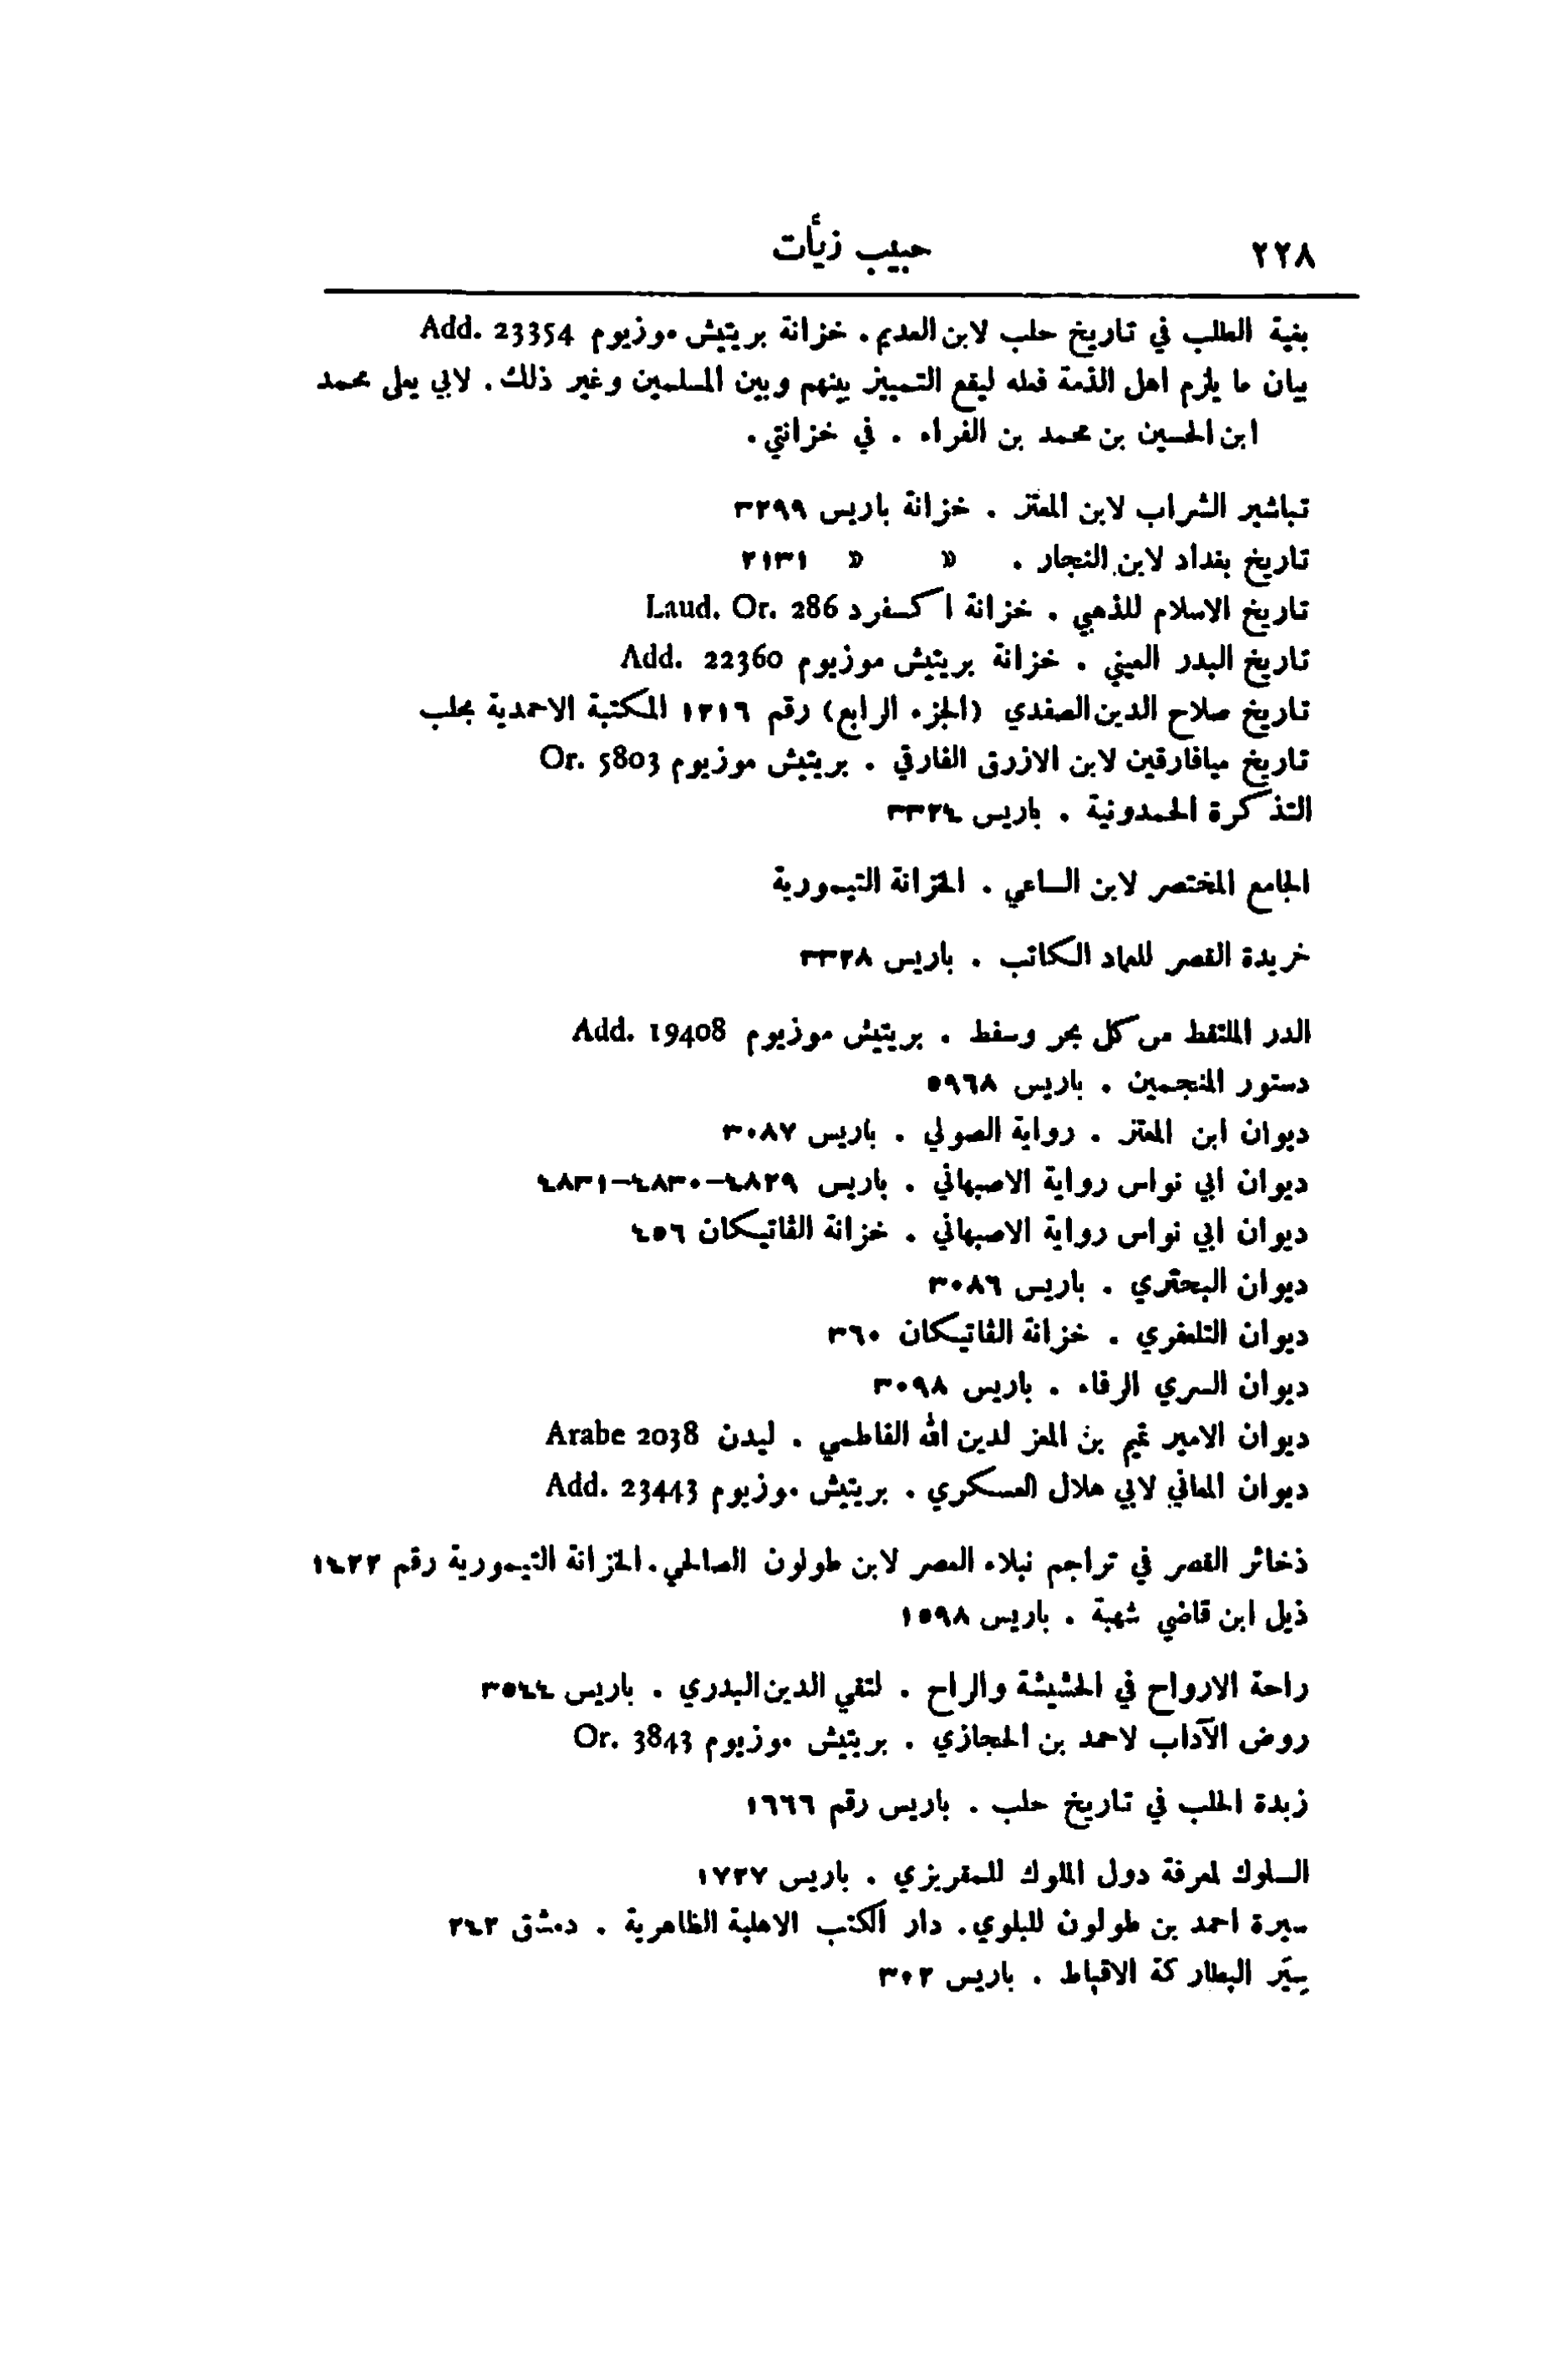 ٢٢٨ حبيب زيأت
بغية الطلب في تاريخ حلب لابن العديم . خزانة بريتيش موزيوم Add. 23354
بيان ما يلزم اهل الذمة فعله ليقع التمييز بينهم وبين المسلمين وغير ذلك . لابي يعلى محمد
ابن الحسين بن محمد بن الفراء . في خزانتي .
تباشير الشراب لابن المعتز . خزانة باريس ٣٢٩٩
تاريخ بغداد لابن النجار . « « ٢١٣١
تاريخ الاسلام للذهبي . خزانة اكسفرد Laud. Or. 286
تاريخ البدر العيني . خزانة بريتيش موزيوم Add. 22360
تاريخ صلاح الدين الصفدي (الجزء الرابع) رقم ١٢١٦ المكتبة الاحمدية بحلب
تاريخ ميافارقين لابن الازرق الفارقي . بريتيش موزيوم Or. 5803
التذكرة الحمدونية . باريس ٣٣٢٤
الجامع المختصر لابن الساعي . الخزانة التيمورية
خريدة القصر للعماد الكاتب . باريس ٣٣٢٨
الدر الملتقط من كل بحر وسفط . بريتيش موزيوم Add. 19408
دستور المنجمين . باريس ٥٩٦٨
ديوان ابن المعتز . رواية الصولي . باريس ٣٠٨٧
ديوان ابي نواس رواية الاصبهاني . باريس ٤٨٢٩-٤٨٣٠-٤٨٣١
ديوان ابي نواس رواية الاصبهاني . خزانة الڤاتيكان ٤٥٦
ديوان البحتري . باريس ٣٠٨٦
ديوان التلعفري . خزانة الڤاتيكان ٣٦٠
ديوان السري الرفاء . باريس ٣٠٩٨
ديوان الامير تميم بن المعز لدين الله الفاطمي . ليدن Arabe 2038
ديوان المعاني لابي هلال العسكري . بريتيش موزيوم Add. 23443
ذخائر القصر في تراجم نبلاء العصر لابن طولون الصالحي . الخزانة التيمورية رقم ١٤٢٢
ذيل ابن قاضي شهبة . باريس ١٥٩٨
راحة الارواح في الحشيشة والراح . لتقي الدين البدري . باريس ٣٥٤٤
روض الآداب لاحمد بن الحجازي . بريتيش موزيوم Or. 3843
زبدة الحلب في تاريخ حلب . باريس رقم ١٦٦٦
السلوك لمعرفة دول الملوك للمقريزي . باريس ١٧٢٧
سيرة احمد بن طولون للبلوي . دار الكتب الاهلية الظاهرية . دمشق ٢٤٢
سِيَر البطاركة الاقباط . باريس ٣٠٢